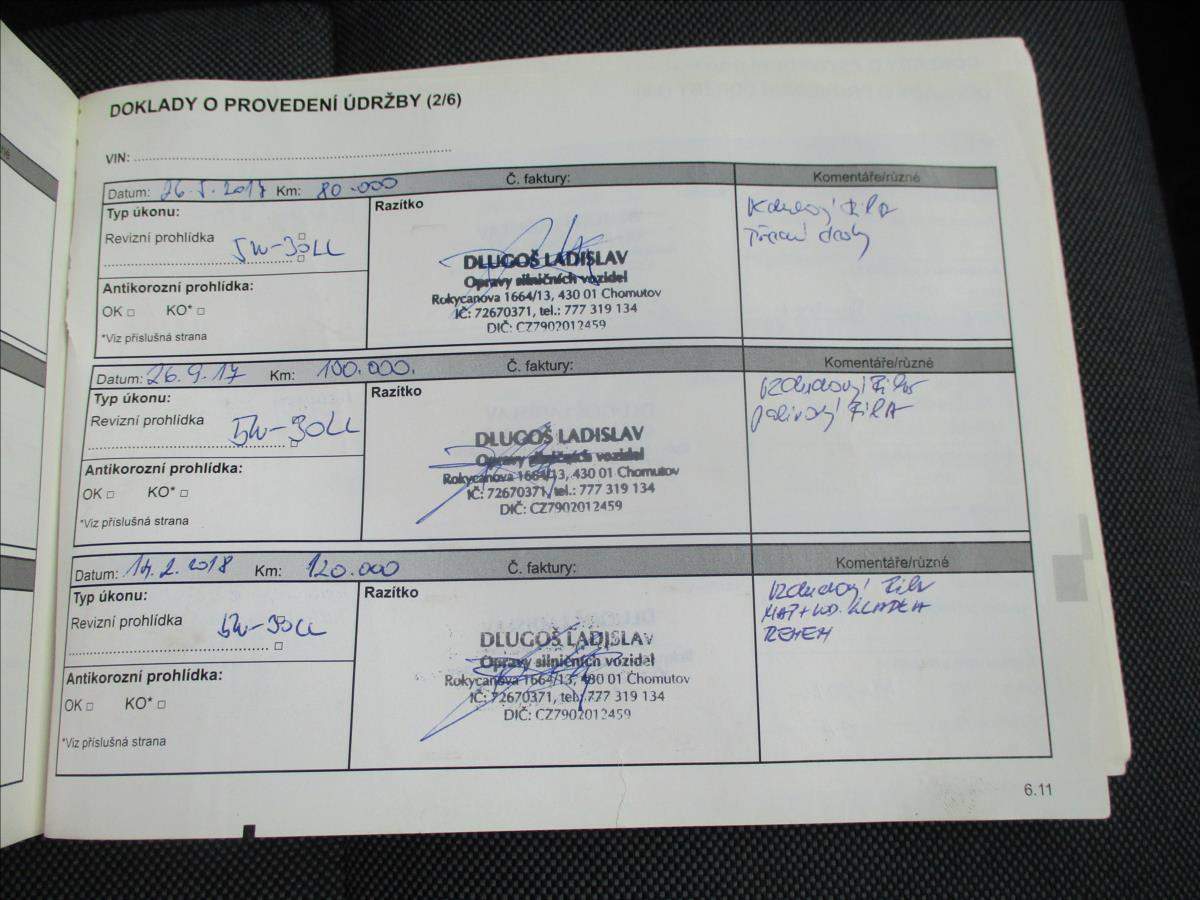 DOKLADY O PROVEDENÍ ÚDRŽBY (2/6)
VIN:
Datum: 26.5.2017 Km: 80.000 Č. faktury: Komentáře/různé
Typ úkonu: Razítko
Revizní prohlídka 5W-30LL
Antikorozní prohlídka:
OK □ KO* □
*Viz příslušná strana
DLUGOŠ LADISLAV
Opravy silničních vozidel
Rokycanova 1664/13, 430 01 Chomutov
IČ: 72670371, tel.: 777 319 134
DIČ: CZ7902012459
Datum: 26.9.17 Km: 100.000. Č. faktury: Komentáře/různé
Typ úkonu: Razítko
Revizní prohlídka 5W-30LL
Antikorozní prohlídka:
OK □ KO* □
*Viz příslušná strana
DLUGOŠ LADISLAV
Opravy silničních vozidel
Rokycanova 1664/13, 430 01 Chomutov
IČ: 72670371, tel.: 777 319 134
DIČ: CZ7902012459
Vzduchový filtr
palivový filtr
Datum: 14.2.2018 Km: 120.000 Č. faktury: Komentáře/různé
Typ úkonu: Razítko
Revizní prohlídka 5W-30LL
Antikorozní prohlídka:
OK □ KO* □
*Viz příslušná strana
DLUGOŠ LADISLAV
Opravy silničních vozidel
Rokycanova 1664/13, 430 01 Chomutov
IČ: 72670371, tel.: 777 319 134
DIČ: CZ7902012459
Vzduchový filtr
ŘEMEN
6.11